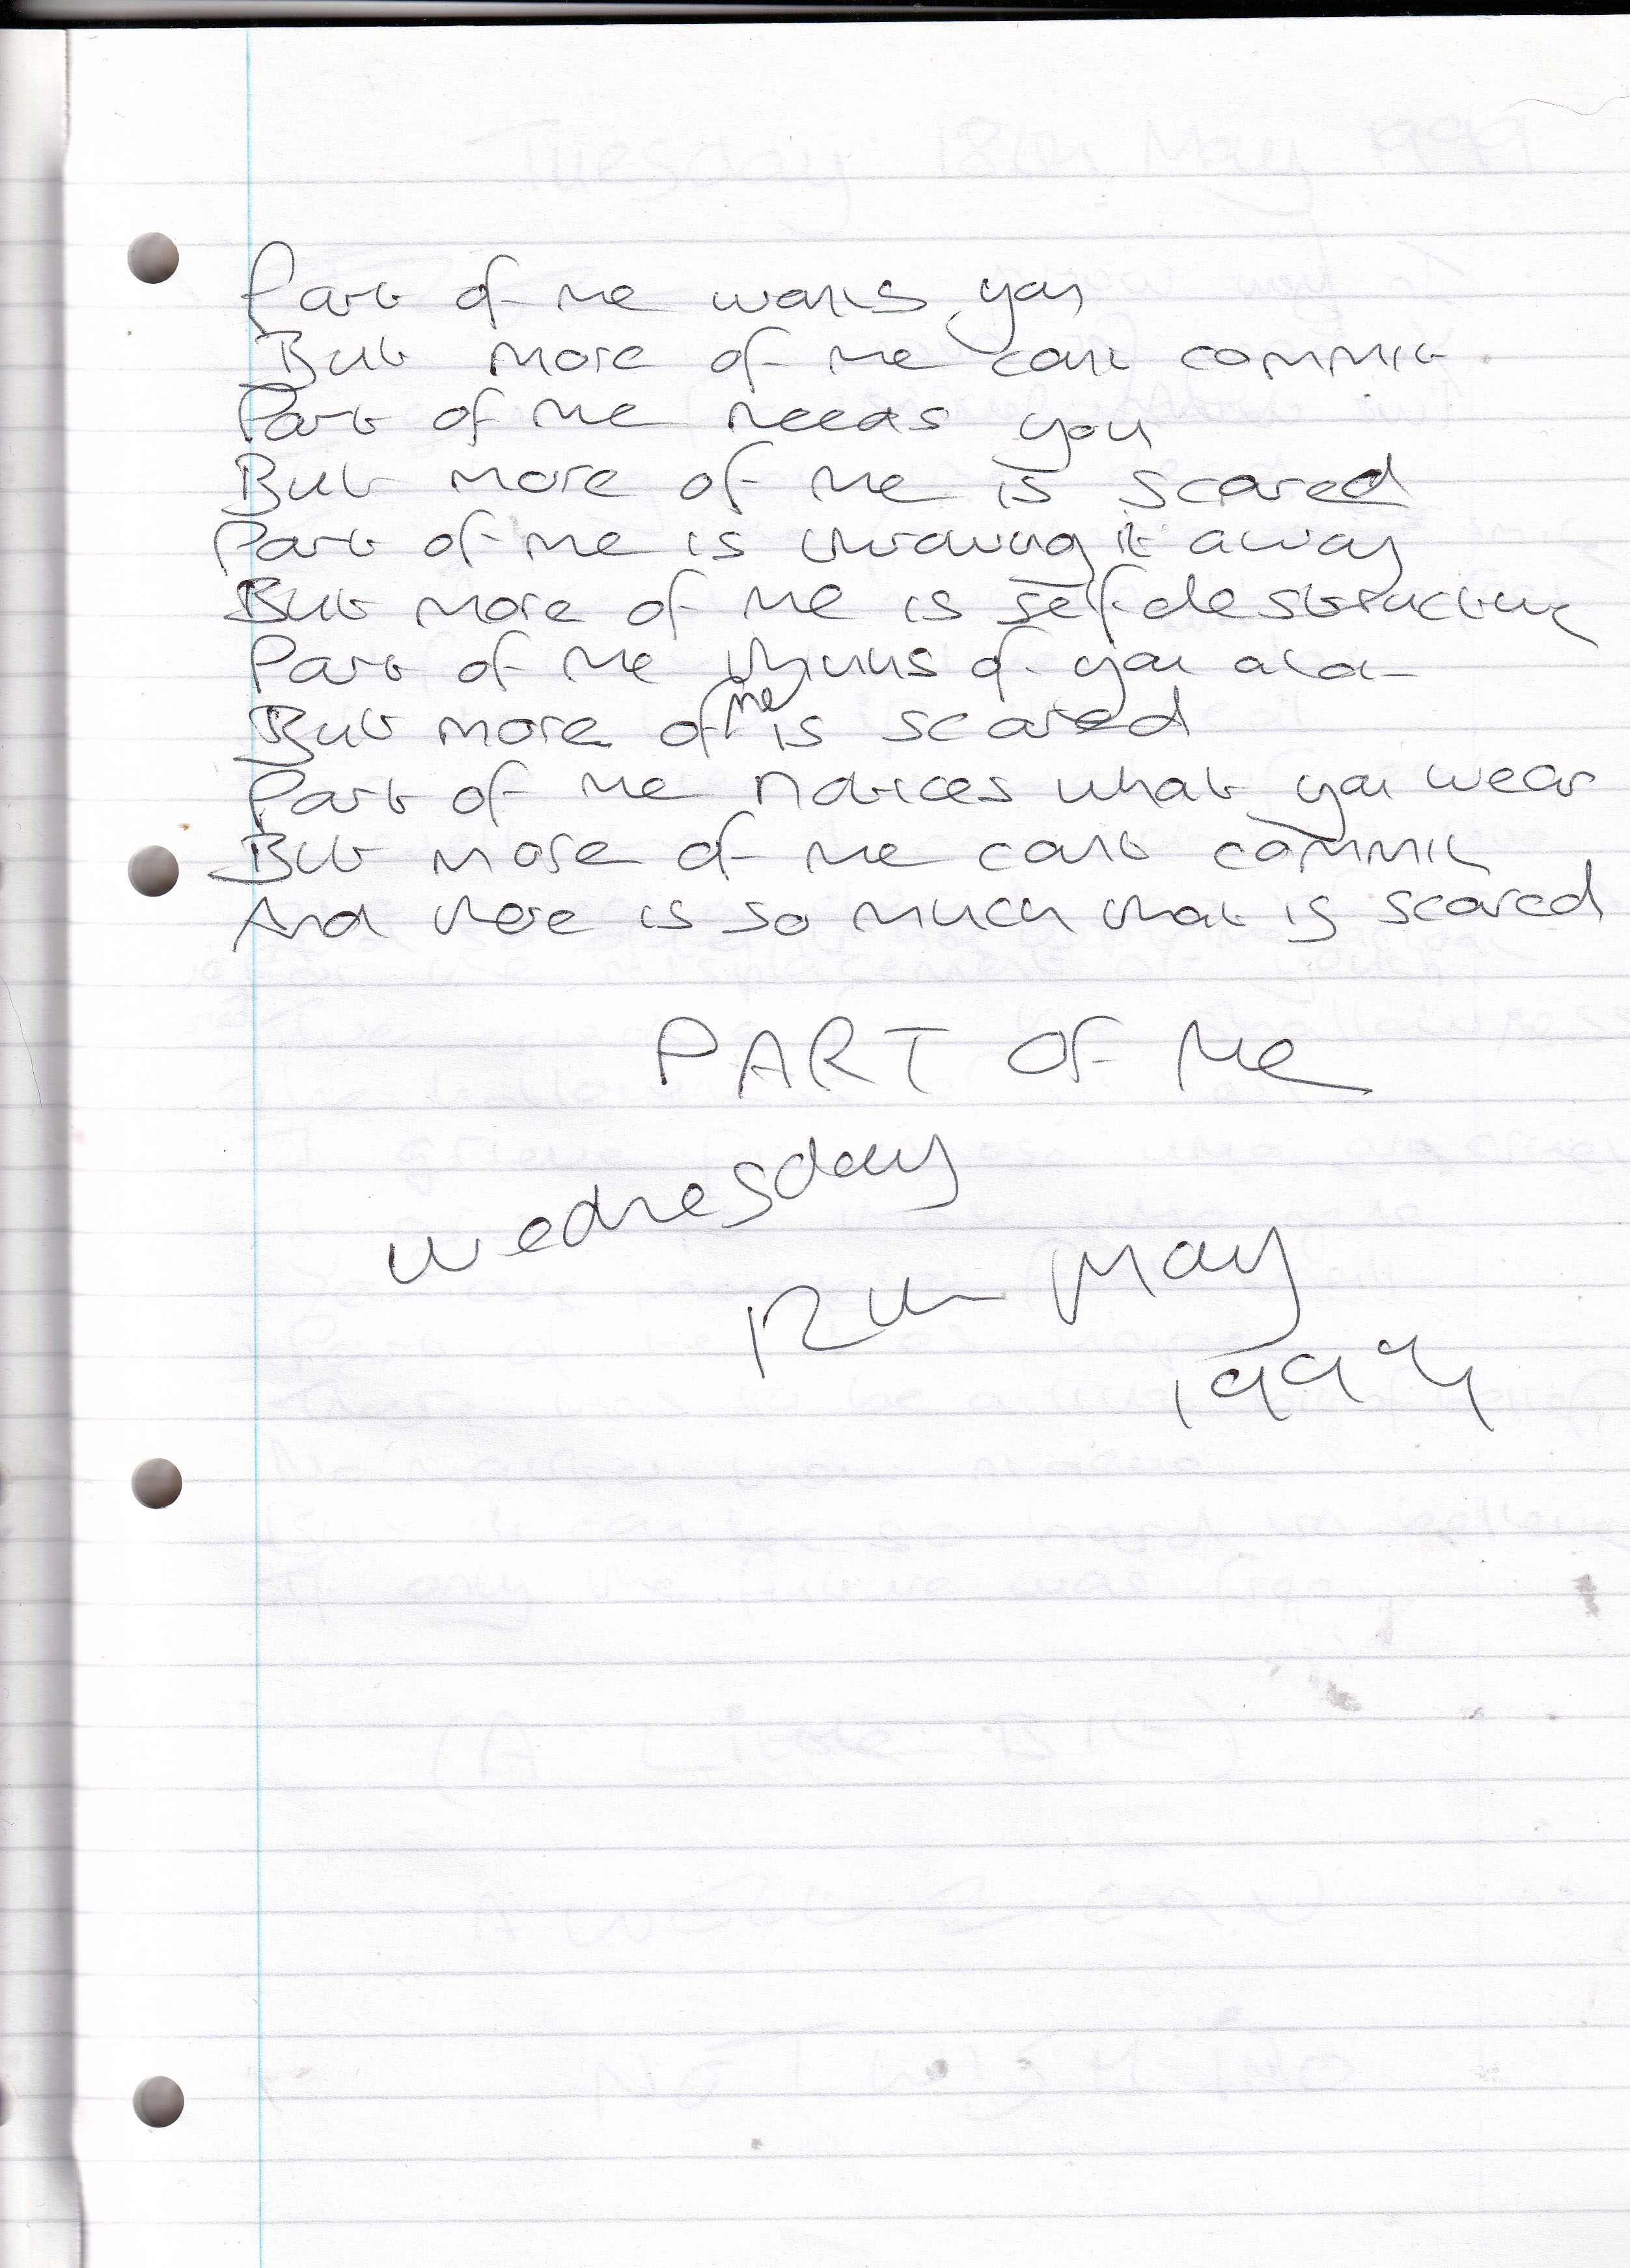 Part of me wants you
But more of me cant commit
Part of me needs you
But more of me is scared
Part of me is throwing it away
But more of me is self-destructing
Part of me thinks of you alot
But more of me is scared
Part of me notices what you wear
But more of me cant commit
And there is so much that is scared
PART OF Me
Wednesday
12th May
1999